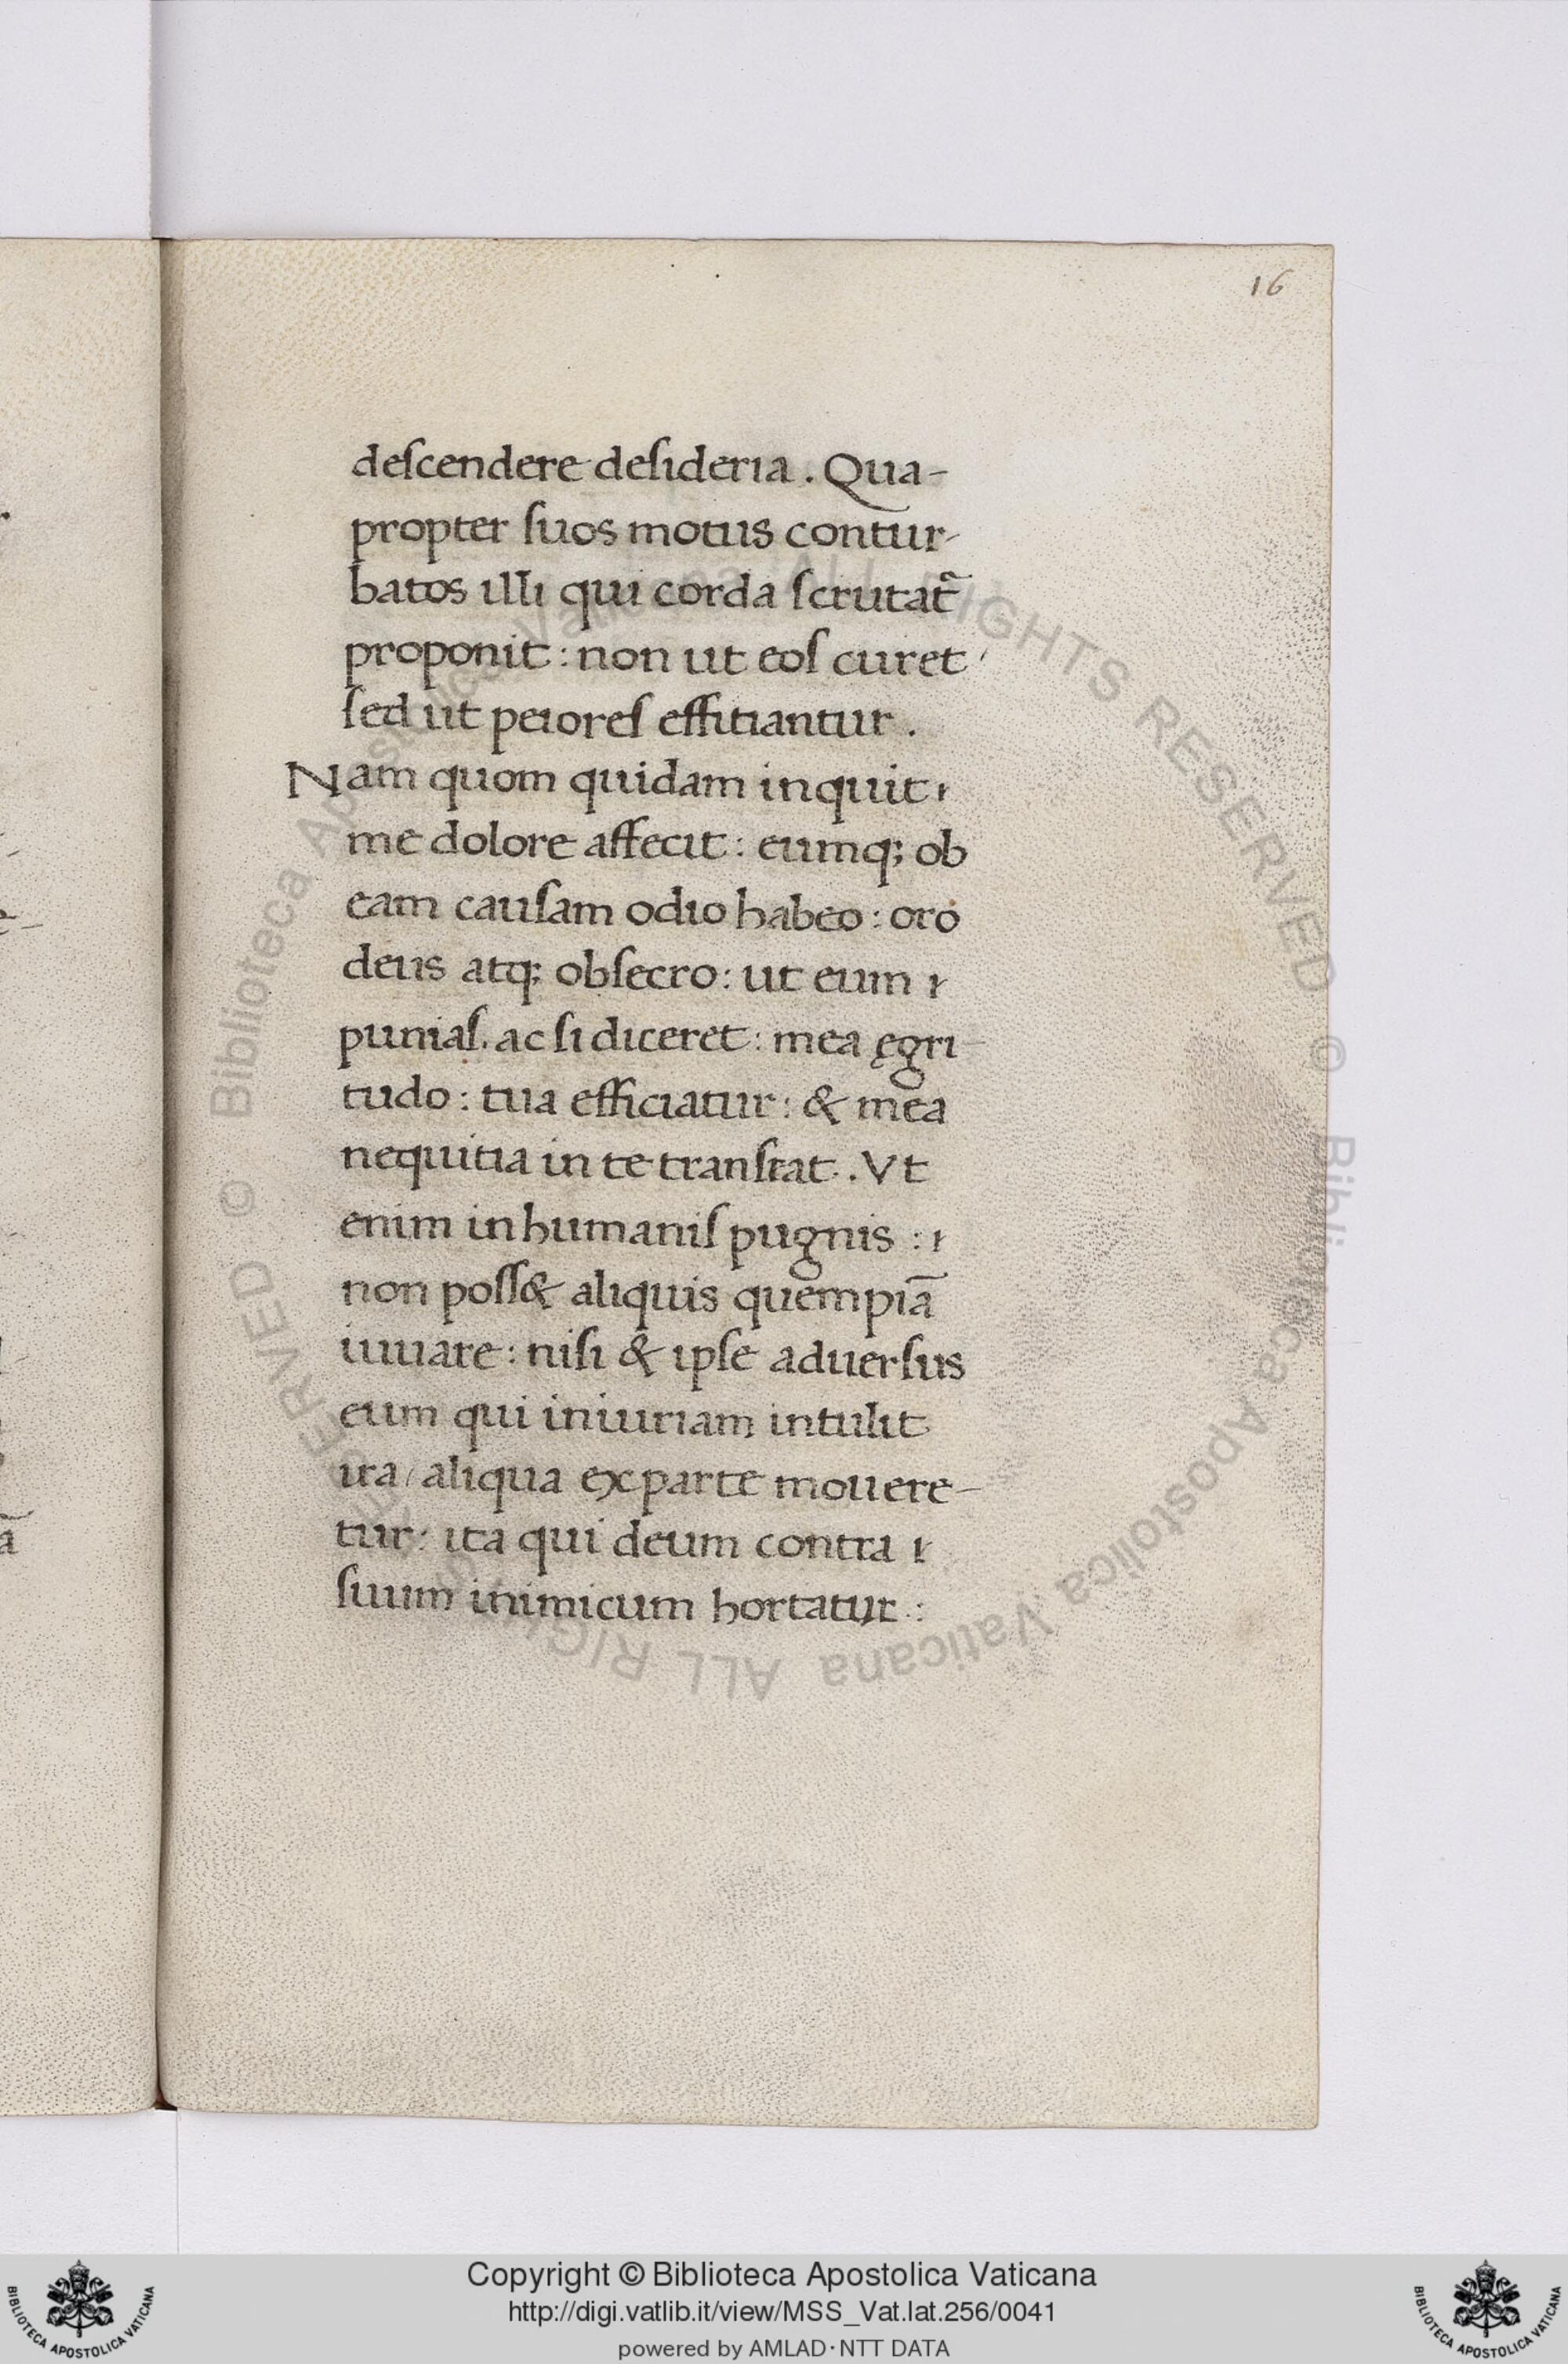 16
deſcendere deſideria . Qua-
propter ſuos motus contur-
batos illi qui corda ſcrutat᷑
proponit : non ut eoſ curet /
ſed ut peioreſ effitiantur .
Nam quom quidam inquit ı
me dolore affecit : eumq; ob
eam cauſam odio habeo : oro
deus atq; obſecro : ut eum ı
puniaſ. ac ſi diceret : mea ęgri-
tudo : tua efficiatur : & mea
nequitia in te tranſeat . Vt
enim in humaniſ pugnis : ı
non poſſ& aliquis quempiā
iuuare : niſi & ipſe aduerſus
eum qui iniuriam intulit
ira / aliqua ex parte mouere-
tur : ita qui deum contra ı
ſuum inimicum hortatur :
© Biblioteca Apostolica Vaticana ALL RIGHTS RESERVED
© Biblioteca Apostolica Vaticana ALL RIGHTS RESERVED
Copyright © Biblioteca Apostolica Vaticana
http://digi.vatlib.it/view/MSS_Vat.lat.256/0041
powered by AMLAD · NTT DATA
BIBLIOTECA APOSTOLICA VATICANA
BIBLIOTECA APOSTOLICA VATICANA